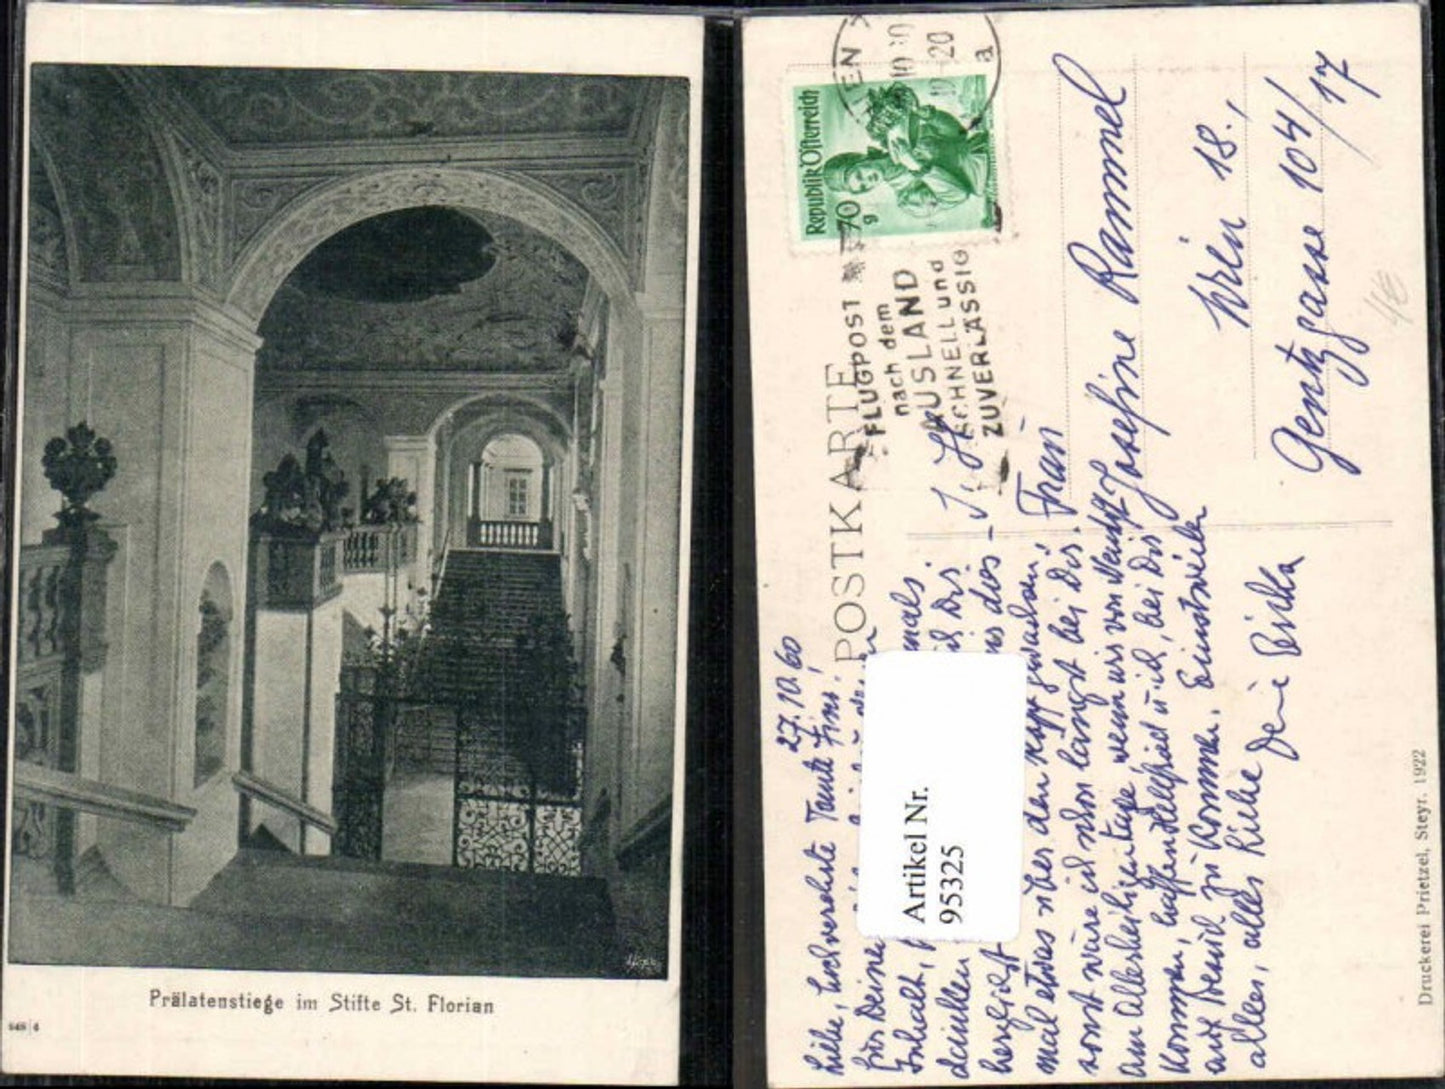 Prälatenstiege im Stifte St. Florian
648 4
Republik Österreich
70 g
WIEN
10 20
a
FLUGPOST
nach dem
AUSLAND
SCHNELL und
ZUVERLÄSSIG
POSTKARTE
Frau
Josefine Rammel
Wien 18.,
Gentzgasse 104/17
4€
27.10.60
Liebe, hochverehrte Tante Fini!
für Deine
mals
danken
herzlichst
mal etwas über den Kopf gewachsen,
sonst wäre ich schon längst bei Dir.
Am Allerheiligentage, wenn wir von
kommen, hoffen u. ich, bei Dir
auf Besuch zu kommen. Einstweilen
alles, alles Liebe Deine
Artikel Nr.
95325
Druckerei Prietzel, Steyr. 1922